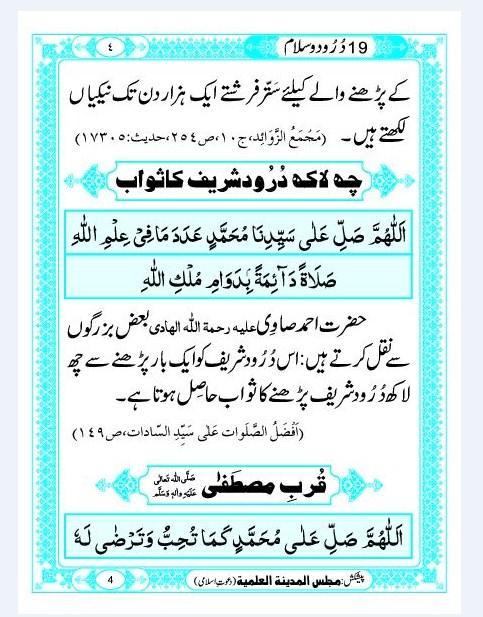 19 دُرُود و سلام
٤
کے پڑھنے والے کیلئے ستّر فرشتے ایک ہزار دن تک نیکیاں
لکھتے ہیں۔ (مَجْمَعُ الزَّوَائِد، ج ١٠، ص ٢٥٤، حدیث: ١٧٣٠٥)
چھ لاکھ دُرُود شریف کا ثواب
اَللّٰهُمَّ صَلِّ عَلٰى سَيِّدِنَا مُحَمَّدٍ عَدَدَ مَا فِىْ عِلْمِ اللّٰهِ
صَلَاةً دَآئِمَةً ۢ بِدَوَامِ مُلْكِ اللّٰهِ
حضرت احمد صاوِی علیه رحمة الله الهادی بعض بزرگوں
سے نقل کرتے ہیں: اس دُرُود شریف کو ایک بار پڑھنے سے چھ
لاکھ دُرُود شریف پڑھنے کا ثواب حاصِل ہوتا ہے۔
(اَفْضَلُ الصَّلَوات عَلٰى سَیِّدِ السَّادات، ص ١٤٩)
قُربِ مصطَفٰی صَلَّی اللہ تَعَالٰی عَلَیْہِ وَاٰلِہٖ وَسَلَّم
اَللّٰهُمَّ صَلِّ عَلٰى مُحَمَّدٍ كَمَا تُحِبُّ وَتَرْضٰى لَهٗ
پیشکش: مجلس المدینة العلمیة (دعوتِ اسلامی)
4